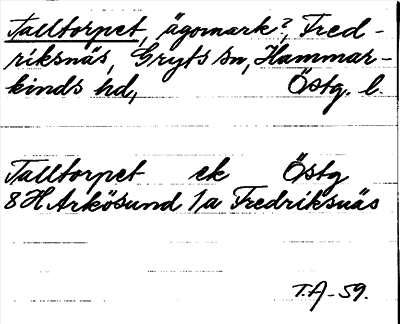 Talltorpet, ägomark?, Fred-
riksnäs, Gryts sn, Hammar-
kinds hd, Östg. l.
Talltorpet ek Östg
8H Arkösund 1a Fredriksnäs
T.A-59.